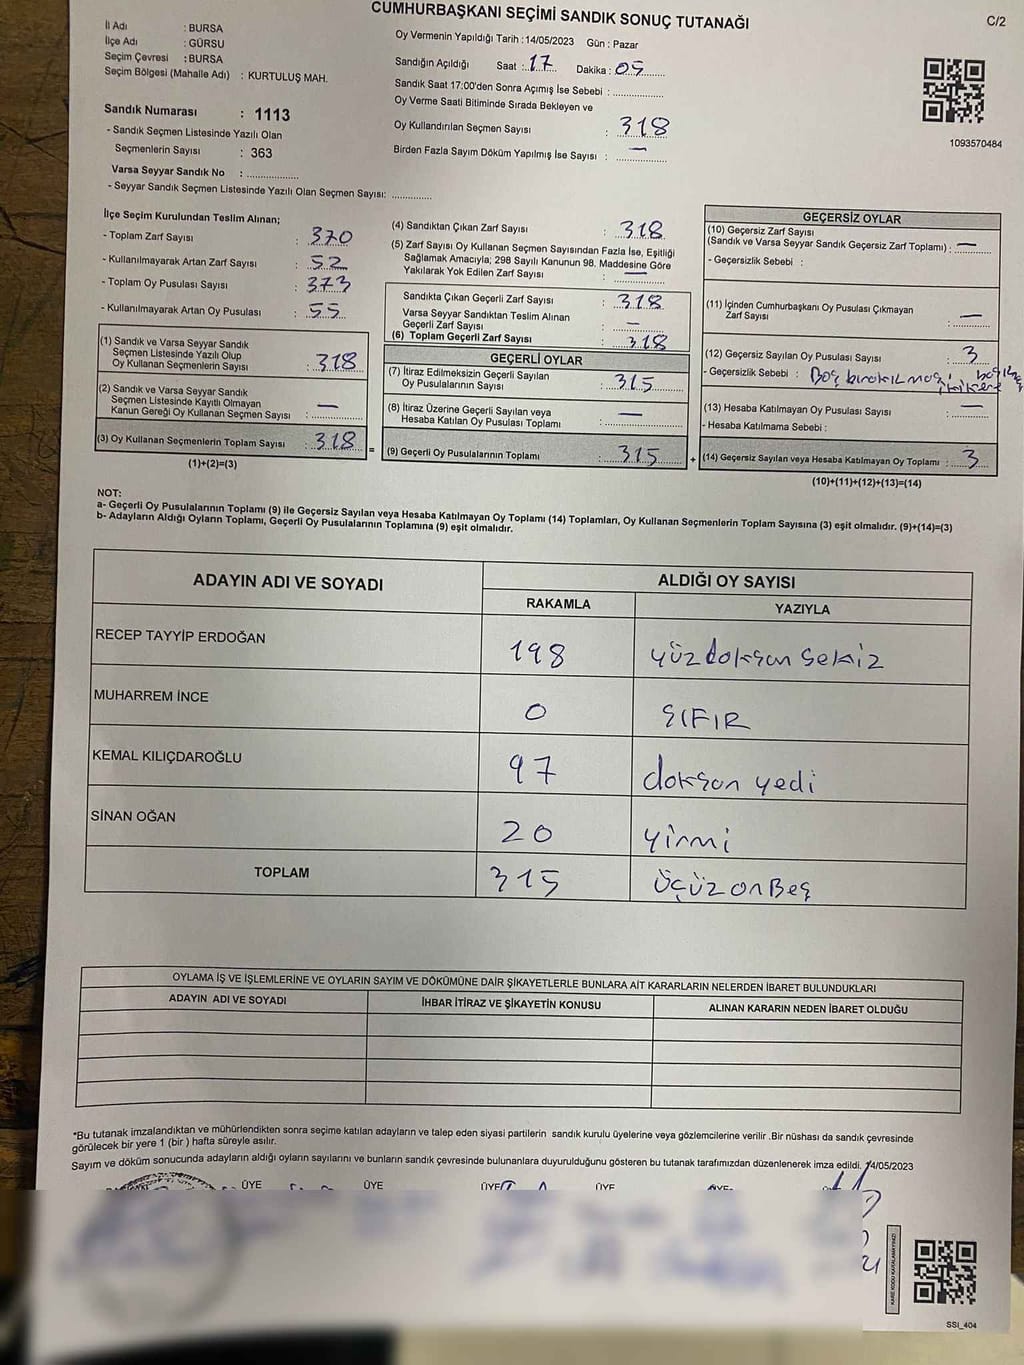 CUMHURBAŞKANI SEÇİMİ SANDIK SONUÇ TUTANAĞI
C/2
İl Adı : BURSA
İlçe Adı : GÜRSU
Seçim Çevresi : BURSA
Seçim Bölgesi (Mahalle Adı) : KURTULUŞ MAH.
Oy Vermenin Yapıldığı Tarih :14/05/2023 Gün : Pazar
Sandığın Açıldığı Saat : 17 Dakika : 05
Sandık Saat 17:00'den Sonra Açımış İse Sebebi :
Oy Verme Saati Bitiminde Sırada Bekleyen ve
Oy Kullandırılan Seçmen Sayısı : 318
Birden Fazla Sayım Döküm Yapılmış İse Sayısı : —
1093570484
Sandık Numarası : 1113
- Sandık Seçmen Listesinde Yazılı Olan
Seçmenlerin Sayısı : 363
Varsa Seyyar Sandık No :
- Seyyar Sandık Seçmen Listesinde Yazılı Olan Seçmen Sayısı:
İlçe Seçim Kurulundan Teslim Alınan;
- Toplam Zarf Sayısı : 370
- Kullanılmayarak Artan Zarf Sayısı : 52
- Toplam Oy Pusulası Sayısı : 373
- Kullanılmayarak Artan Oy Pusulası : 55
(1) Sandık ve Varsa Seyyar Sandık
Seçmen Listesinde Yazılı Olup
Oy Kullanan Seçmenlerin Sayısı : 318
(2) Sandık ve Varsa Seyyar Sandık
Seçmen Listesinde Kayıtlı Olmayan
Kanun Gereği Oy Kullanan Seçmen Sayısı : —
(3) Oy Kullanan Seçmenlerin Toplam Sayısı : 318 =
(1)+(2)=(3)
(4) Sandıktan Çıkan Zarf Sayısı : 318
(5) Zarf Sayısı Oy Kullanan Seçmen Sayısından Fazla İse, Eşitliği
Sağlamak Amacıyla; 298 Sayılı Kanunun 98. Maddesine Göre
Yakılarak Yok Edilen Zarf Sayısı : —
Sandıkta Çıkan Geçerli Zarf Sayısı : 318
Varsa Seyyar Sandıktan Teslim Alınan
Geçerli Zarf Sayısı : —
(6) Toplam Geçerli Zarf Sayısı : 318
GEÇERLİ OYLAR
(7) İtiraz Edilmeksizin Geçerli Sayılan
Oy Pusulalarının Sayısı : 315
(8) İtiraz Üzerine Geçerli Sayılan veya
Hesaba Katılan Oy Pusulası Toplamı : —
(9) Geçerli Oy Pusulalarının Toplamı : 315 +
GEÇERSİZ OYLAR
(10) Geçersiz Zarf Sayısı
(Sandık ve Varsa Seyyar Sandık Geçersiz Zarf Toplamı) : —
- Geçersizlik Sebebi :
(11) İçinden Cumhurbaşkanı Oy Pusulası Çıkmayan
Zarf Sayısı : —
(12) Geçersiz Sayılan Oy Pusulası Sayısı : 3
- Geçersizlik Sebebi : Boş bırakılması
(13) Hesaba Katılmayan Oy Pusulası Sayısı : —
- Hesaba Katılmama Sebebi :
(14) Geçersiz Sayılan veya Hesaba Katılmayan Oy Toplamı : 3
(10)+(11)+(12)+(13)=(14)
NOT:
a- Geçerli Oy Pusulalarının Toplamı (9) ile Geçersiz Sayılan veya Hesaba Katılmayan Oy Toplamı (14) Toplamları, Oy Kullanan Seçmenlerin Toplam Sayısına (3) eşit olmalıdır. (9)+(14)=(3)
b- Adayların Aldığı Oyların Toplamı, Geçerli Oy Pusulalarının Toplamına (9) eşit olmalıdır.
ADAYIN ADI VE SOYADI
ALDIĞI OY SAYISI
RAKAMLA YAZIYLA
RECEP TAYYİP ERDOĞAN 198 yüz doksan sekiz
MUHARREM İNCE 0 SIFIR
KEMAL KILIÇDAROĞLU 97 doksan yedi
SİNAN OĞAN 20 yirmi
TOPLAM 315 üçüz on Beş
OYLAMA İŞ VE İŞLEMLERİNE VE OYLARIN SAYIM VE DÖKÜMÜNE DAİR ŞİKAYETLERLE BUNLARA AİT KARARLARIN NELERDEN İBARET BULUNDUKLARI
ADAYIN ADI VE SOYADI İHBAR İTİRAZ VE ŞİKAYETİN KONUSU ALINAN KARARIN NEDEN İBARET OLDUĞU
*Bu tutanak imzalandıktan ve mühürlendikten sonra seçime katılan adayların ve talep eden siyasi partilerin sandık kurulu üyelerine veya gözlemcilerine verilir .Bir nüshası da sandık çevresinde
görülecek bir yere 1 (bir ) hafta süreyle asılır.
Sayım ve döküm sonucunda adayların aldığı oyların sayılarını ve bunların sandık çevresinde bulunanlara duyurulduğunu gösteren bu tutanak tarafımızdan düzenlenerek imza edildi. 14/05/2023
ÜYE ÜYE ÜYE ÜYE ÜYE
KARE KODU KARALAMAYINIZ!
SSI_404